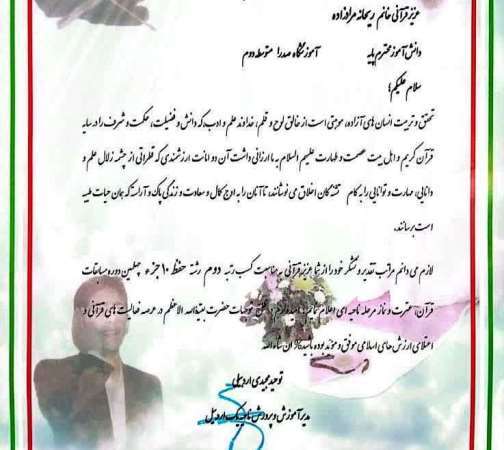 عزیز قرآنی خانم ریحانه مرادزاده
دانش آموز محترم پایه آموزشگاه صدرا متوسطه دوم
سلام علیکم؛
تحقق و تربیت انسان های آزاده، موهبتی است از خالق لوح و قلم، خداوند علم و ادب، که دانش و فضیلت، حکمت و شرف را در سایه
قرآن کریم و اهل بیت عصمت و طهارت علیهم السلام به ما ارزانی داشت آن دو امانت ارزشمندی که قطراتی از چشمه زلال علم و
دانایی، مهارت و توانایی را به کام تشنگان اخلاق می نوشانند، تا آنان را به اوج کمال و سعادت و زندگی پاک و آراسته که همان حیات طیبه
است برسانند.
لازم می دانم مراتب تقدیر و تشکر خود را از شما عزیز قرآنی به مناسبت کسب رتبه دوم رشته حفظ ۱۰ جزء چهلمین دوره مسابقات
قرآن، عترت و نماز مرحله ناحیه ای اعلام نمایم. امیدوارم در توجهات حضرت بقیةالله الاعظم در عرصه فعالیت های قرآنی و
اعتلای ارزش های اسلامی موفق و موید بوده باشید. ان شاءالله
توحید مجیدی اردبیلی
مدیر آموزش و پرورش ناحیه یک اردبیل